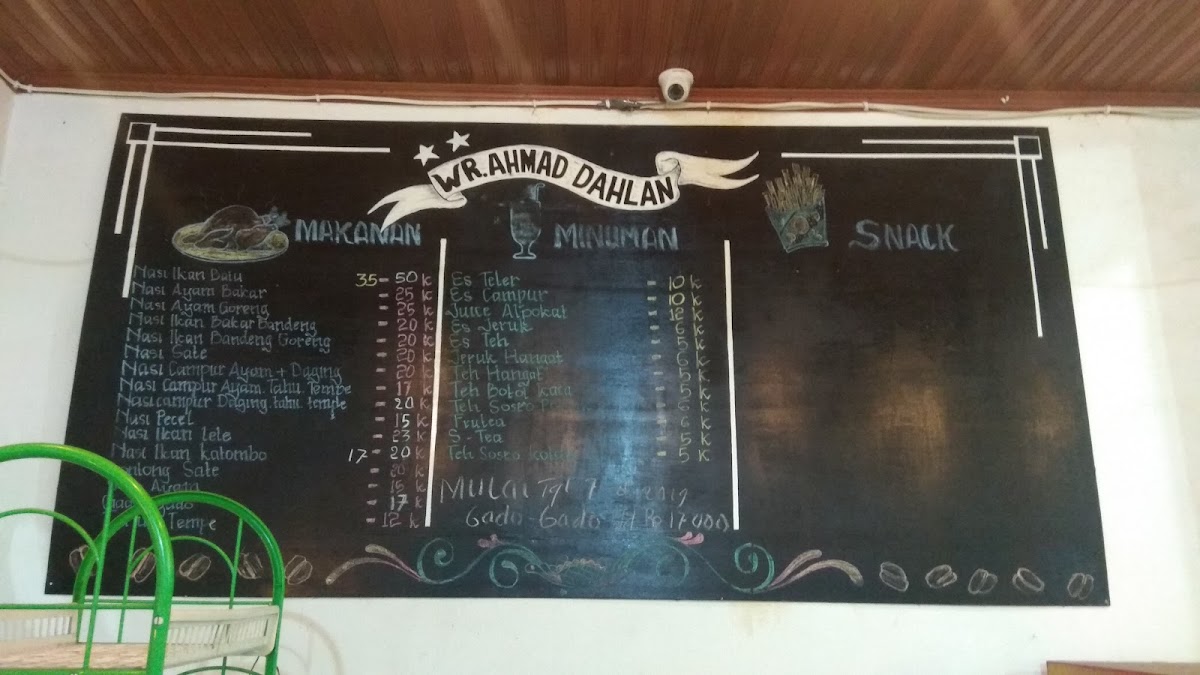 WR. AHMAD DAHLAN
MAKANAN
Nasi Ikan Batu 35 - 50 k
Nasi Ayam Bakar - 25 k
Nasi Ayam Goreng - 25 k
Nasi Ikan Bakar Bandeng - 20 k
Nasi Ikan Bandeng Goreng - 20 k
Nasi Sate - 20 k
Nasi Campur Ayam + Daging - 20 k
Nasi Campur Ayam. Tahu. Tempe - 17 k
Nasi Campur Daging. tahu. tempe - 20 k
Nasi Pecel - 15 k
Nasi Ikan Lele - 23 k
Nasi Ikan Katombo 17 - 20 k
Lontong Sate - 20 k
Ayam - 15 k
- 17 k
Tempe - 12 k
MINUMAN
Es Teler - 10 k
Es Campur - 10 k
Juice Alpokat - 12 k
Es Jeruk - 6 k
Es Teh - 5 k
Jeruk Hangat - 6 k
Teh Hangat - 5 k
Teh Botol kaca - 5 k
Teh Sosro - 6 k
Frutea - 6 k
S-Tea - 5 k
Teh Sosro - 5 k
Mulai Tgl 7
Gado-Gado Rp 17 000
SNACK